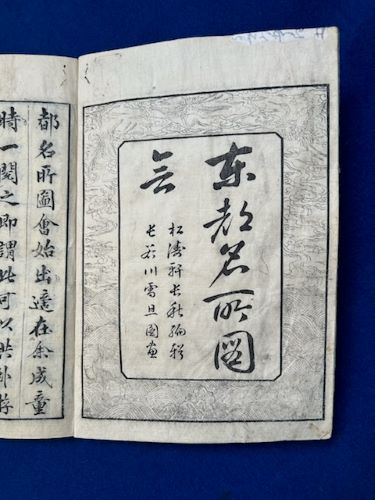 東都名所圖
會
松濤軒長秋編輯
長谷川雪旦圖畫
都名所圖會始出適在余成童
時一閱之即謂此可以供卧游